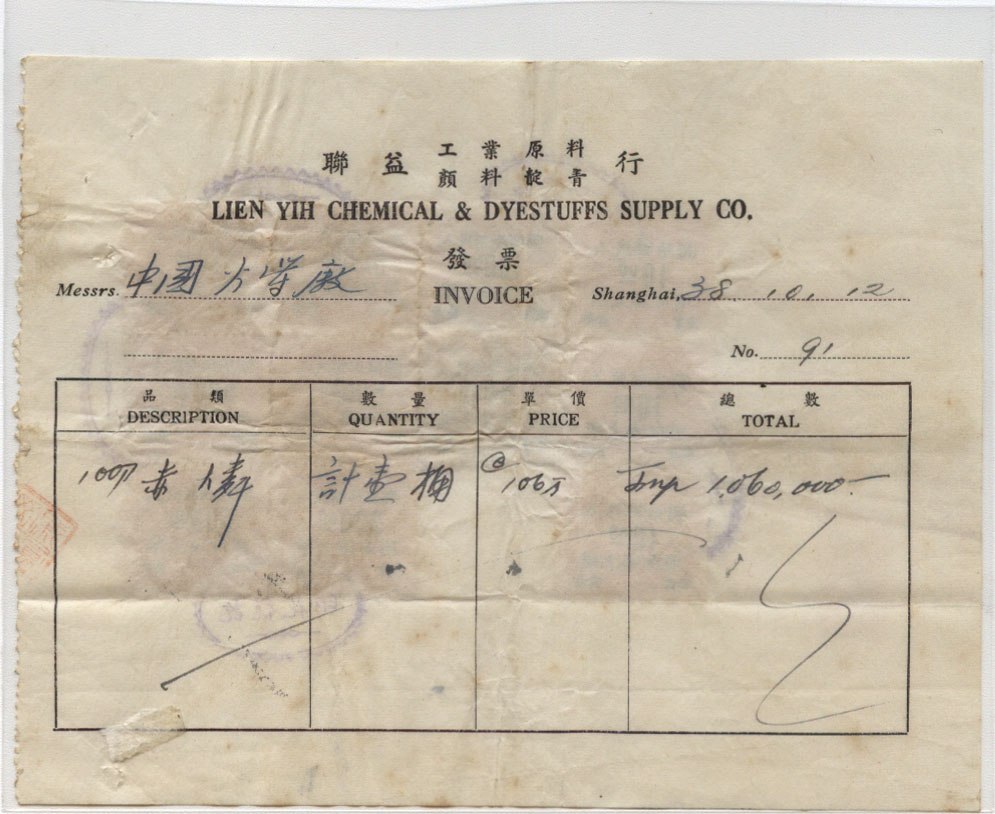 聯益 工業原料 行
顏料靛青
LIEN YIH CHEMICAL & DYESTUFFS SUPPLY CO.
發票
Messrs. 中國火柴廠 INVOICE Shanghai, 38. 10. 12
No. 91
品類 數量 單價 總數
DESCRIPTION QUANTITY PRICE TOTAL
赤燐 計壹桶 @ 106万 1,060,000.-